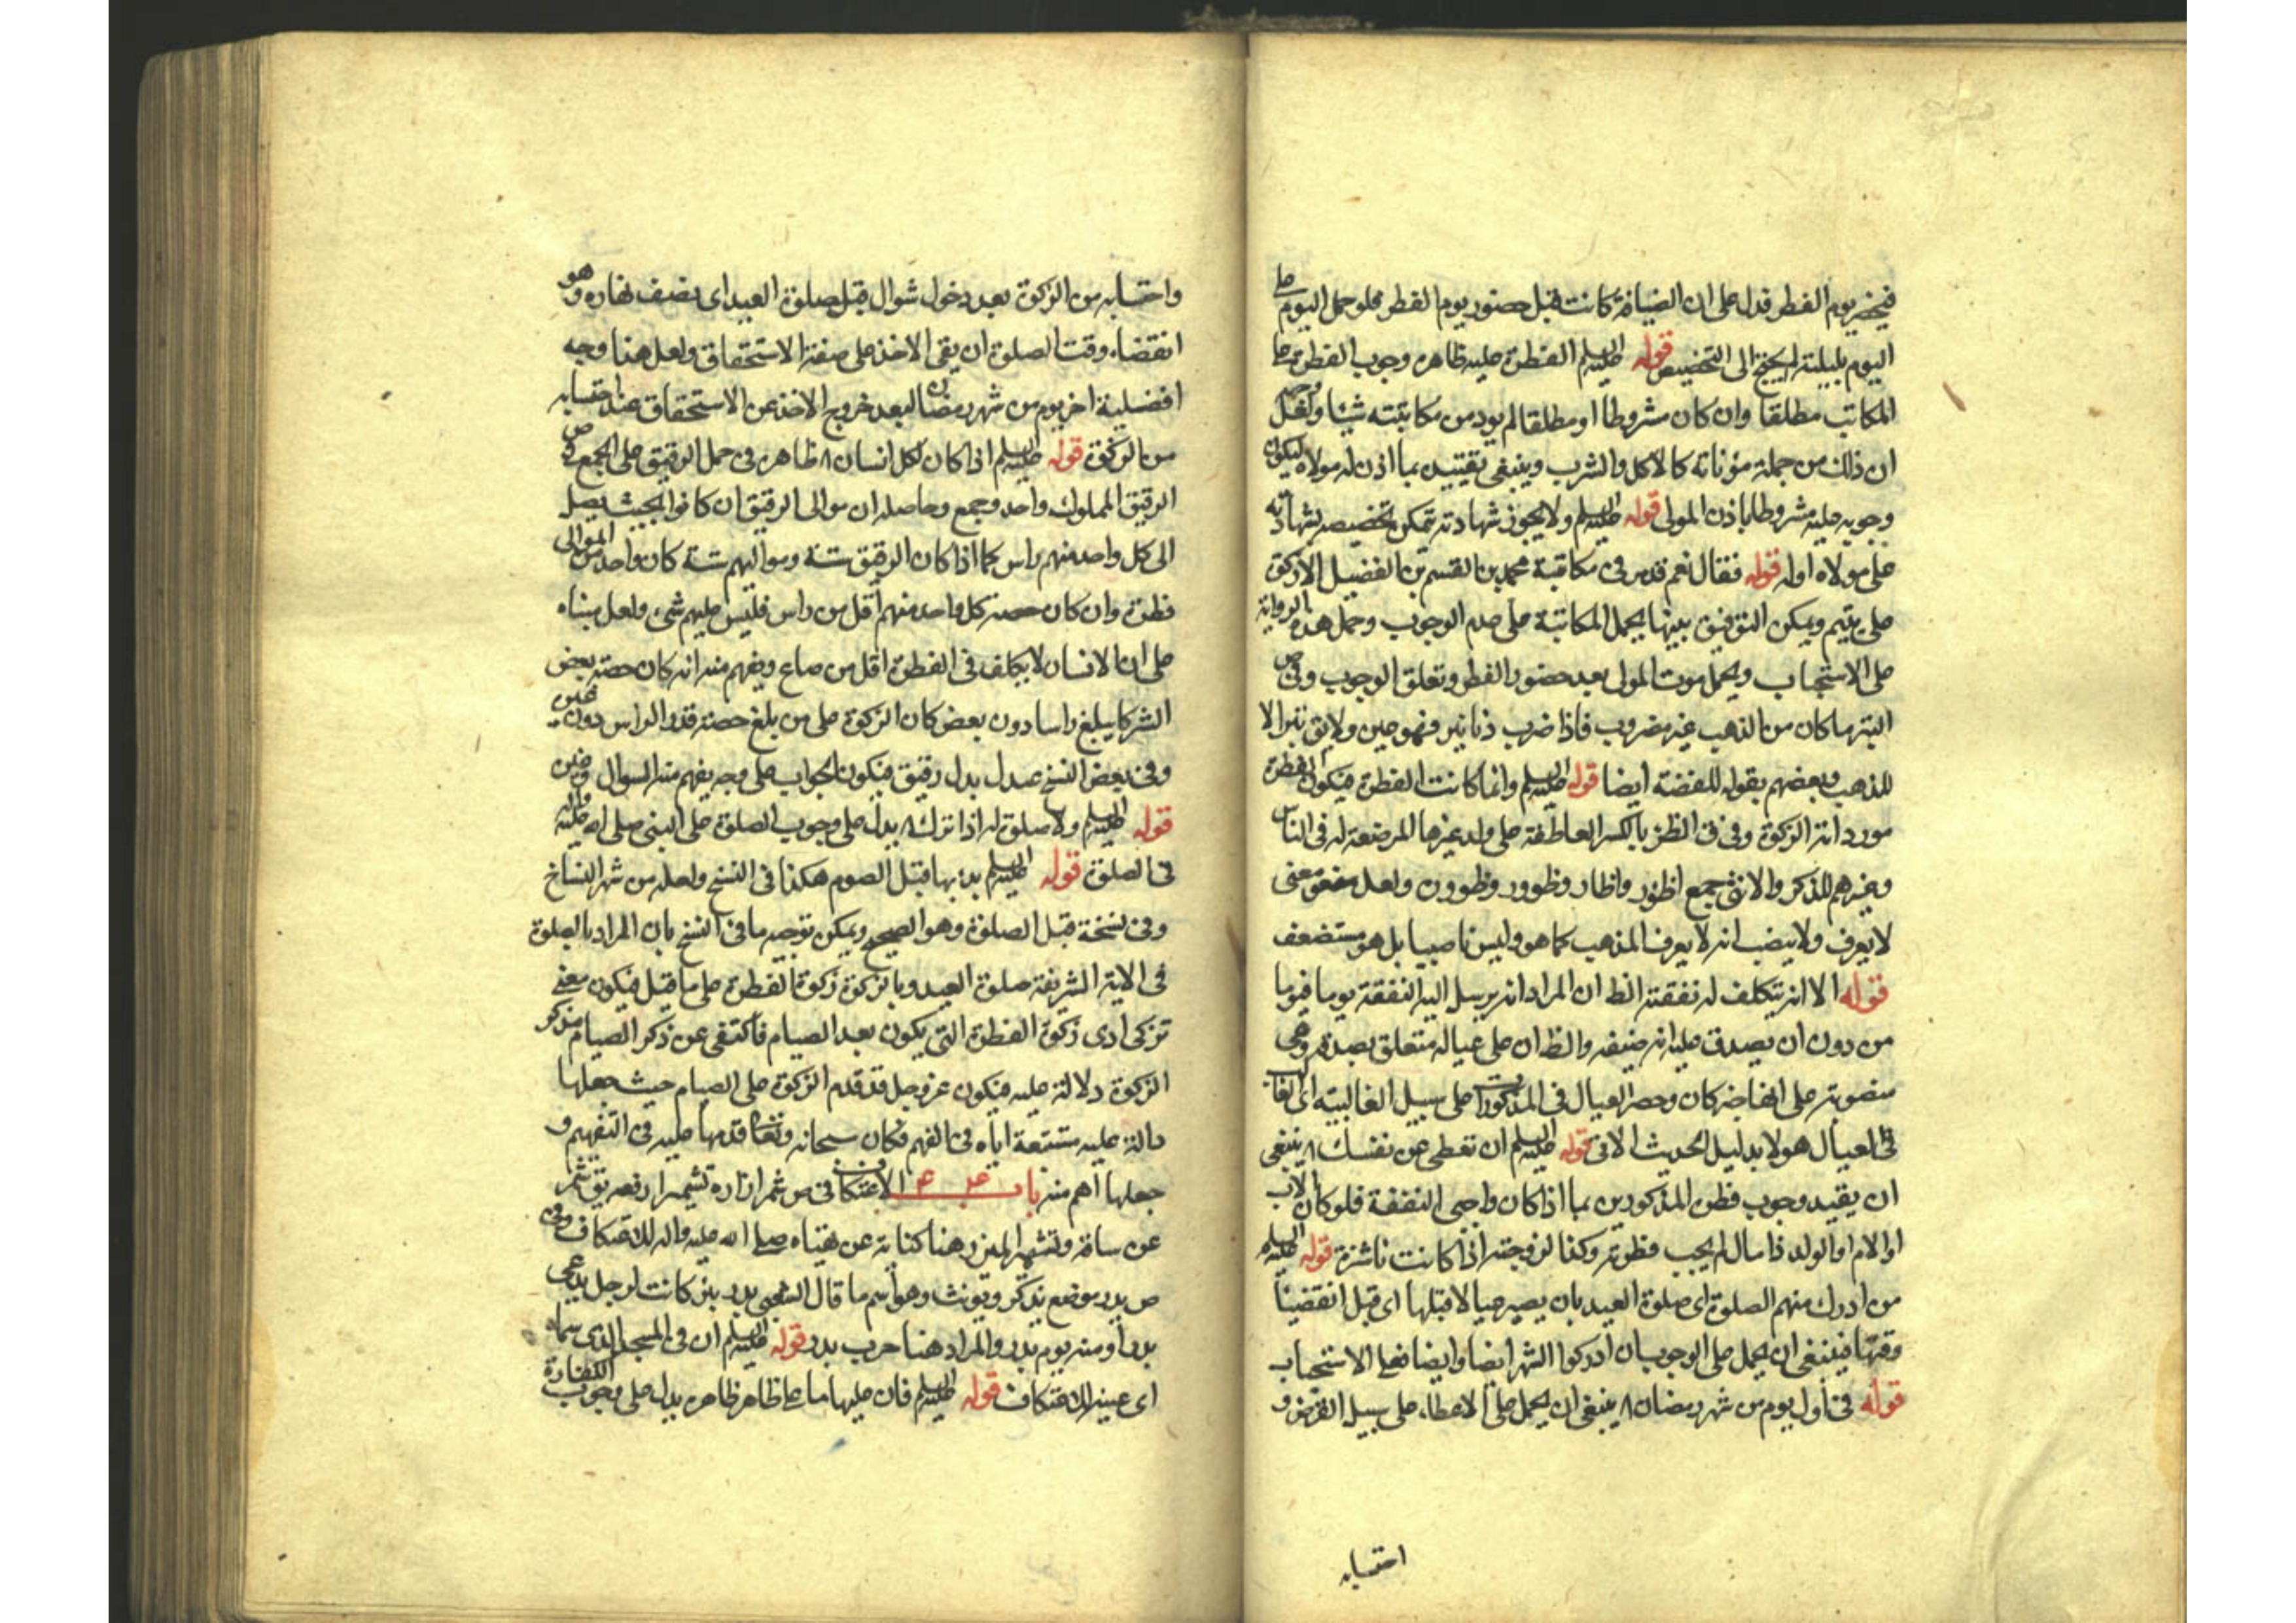 فيحضر يوم الفطر فدل على ان الضيافة كانت قبل حضور يوم الفطر فلو حمل اليوم على
اليوم بليلته لم يحتج الى التخصيص قوله عليه السلم الفطرة عليه ظاهره وجوب الفطرة على
المكاتب مطلقا وان كان مشروطا او مطلقا لم يود من مكاتبته شيئا ولعل وجهه
ان ذلك من جملة مؤناته كالاكل والشرب وينبغي تقييده بما اذن له مولاه ليكون
وجوبه عليه مشروطا باذن المولى قوله عليه السلم ولا يجوز شهادته يمكن تخصيصه بشهادته
على مولاه اوله قوله فقال نعم قد مر في مكاتبة محمد بن القسم بن الفضيل الا زكوة
على يتيم ويمكن التوفيق بينهما بحمل المكاتبة على عدم الوجوب وحمل هذه الرواية
على الاستحباب ويحمل موت المولى بعد حضور الفطر وتعلق الوجوب وفي ص
التبر ما كان من الذهب غير مضروب فاذا ضرب دنانير فهو عين ولا يق تبر الا
للذهب وبعضهم يقوله للفضة ايضا قوله عليه السلم وانما كانت الفطرة فيكون الفطرة
مورد اية الزكوة وفي ق الظئر بالكسر العاطفة على ولد غيرها المرضعة له في الناس
وغيرهم للذكر والانثى جمع اظؤر واظار وظوور وظوورة ولعل معنى
لا يعرف ولا ينصب انه لا يعرف المذهب كما هو وليس ناصبيا بل هو مستضعف
قوله الا انه يتكلف له نفقته الظ ان المراد انه يرسل اليه النفقة يوما فيوما
من دون ان يصدق عليه انه ضيفه والظ ان على عياله متعلق بصدقة وهي
منصوبة على انها خبر كان وحصر العيال في المذكورات على سبيل الغالبية اي الغالب
في العيال هولا بدليل الحديث الاتي قوله عليه السلم ان تعطي عن نفسك ٨ ينبغي
ان يقيد وجوب فطرة المذكورين بما اذا كان واجبي النفقة فلو كان الاب
او الام او الولد ذا مال لم يجب فطرته وكذا لزوجته اذا كانت ناشزة قوله عليه السلم
من ادرك منهم الصلوة اي صلوة العيد بان يصير حيا لا قبلها اي قبل انقضاء
وقتها فينبغي ان يحمل على الوجوب ان ادركوا الشهر ايضا وايضا فعلى الاستحباب
قوله في اول يوم من شهر رمضان ٨ ينبغي ان يحمل على الاعطاء على سبيل القرض و
احتسابه
واحتسابه من الزكوة بعد دخول شوال قبل صلوة العيد اي نصف نهاره وهو
انقضاء وقت الصلوة ان بقي الاخذ على صفة الاستحقاق ولعل هذا وجه
افضلية اخر يوم من شهر رمضان لبعد خروج الاخذ عن الاستحقاق عند احتسابه
من الزكوة قوله عليه السلم اذا كان لكل انسان ٨ ظاهره في حمل الرقيق على الجمع في ص
الرقيق المملوك واحد وجمع وحاصله ان موالى الرقيق ان كانوا بحيث يصل
الى كل واحد منهم راس كما اذا كان الرقيق ستة ومواليهم ستة كان واحد من الموالى
فطرة وان كان حصة كل واحد منهم اقل من راس فليس عليهم شي ولعل مبناه
على ان الانسان لا يكلف في الفطرة اقل من صاع ويفهم منه انه كان حصة بعض
الشركا يبلغ راسا دون بعض كان الزكوة على من بلغ حصته قدر الراس دون غيره
وفي بعض النسخ عبد بدل رقيق فيكون الجواب على وجه يفهم منه السوال وغيره
قوله عليه السلم ولا صلوة له اذا ترك ٨ يدل على وجوب الصلوة على النبي صلى الله عليه واله
في الصلوة قوله عليه السلم بدء بها قبل الصوم هكذا في النسخ ولعله من سهو النساخ
وفي نسخة قبل الصلوة وهو الصحيح ويمكن توجيه ما في النسخ بان المراد بالصلوة
في الاية الشريفة صلوة العيد وبالزكوة زكوة الفطرة على ما قيل فيكون معنى
تزكى ادى زكوة الفطرة التي يكون بعد الصيام فاكتفى عن ذكر الصيام فذكر
الزكوة دلالة عليه فيكون عز وجل قد قدم الزكوة على الصيام حيث جعلها
دالة عليه مستتبعة اياه في الفهم فكان سبحانه وتعالى قدمها عليه في التفهيم و
جعلها اهم منه باب الاعتكاف في ص شمر ازاره تشميرا رفعه يق شمر
عن ساقه وتشمير الميزر هنا كناية عن تهيئاه صلى الله عليه واله للاعتكاف وفي
ص بدر موضع يذكر ويونث وهو اسم ما قال الشعبي بدر بئر كانت لرجل يدعى
بدرا ومنه يوم بدر والمراد هنا حرب بدر قوله عليه السلم ان في المسجد الذي سماه
اي عينه للاعتكاف قوله عليه السلم فان عليها ما على الظاهر ظاهره يدل على وجوب الكفارة